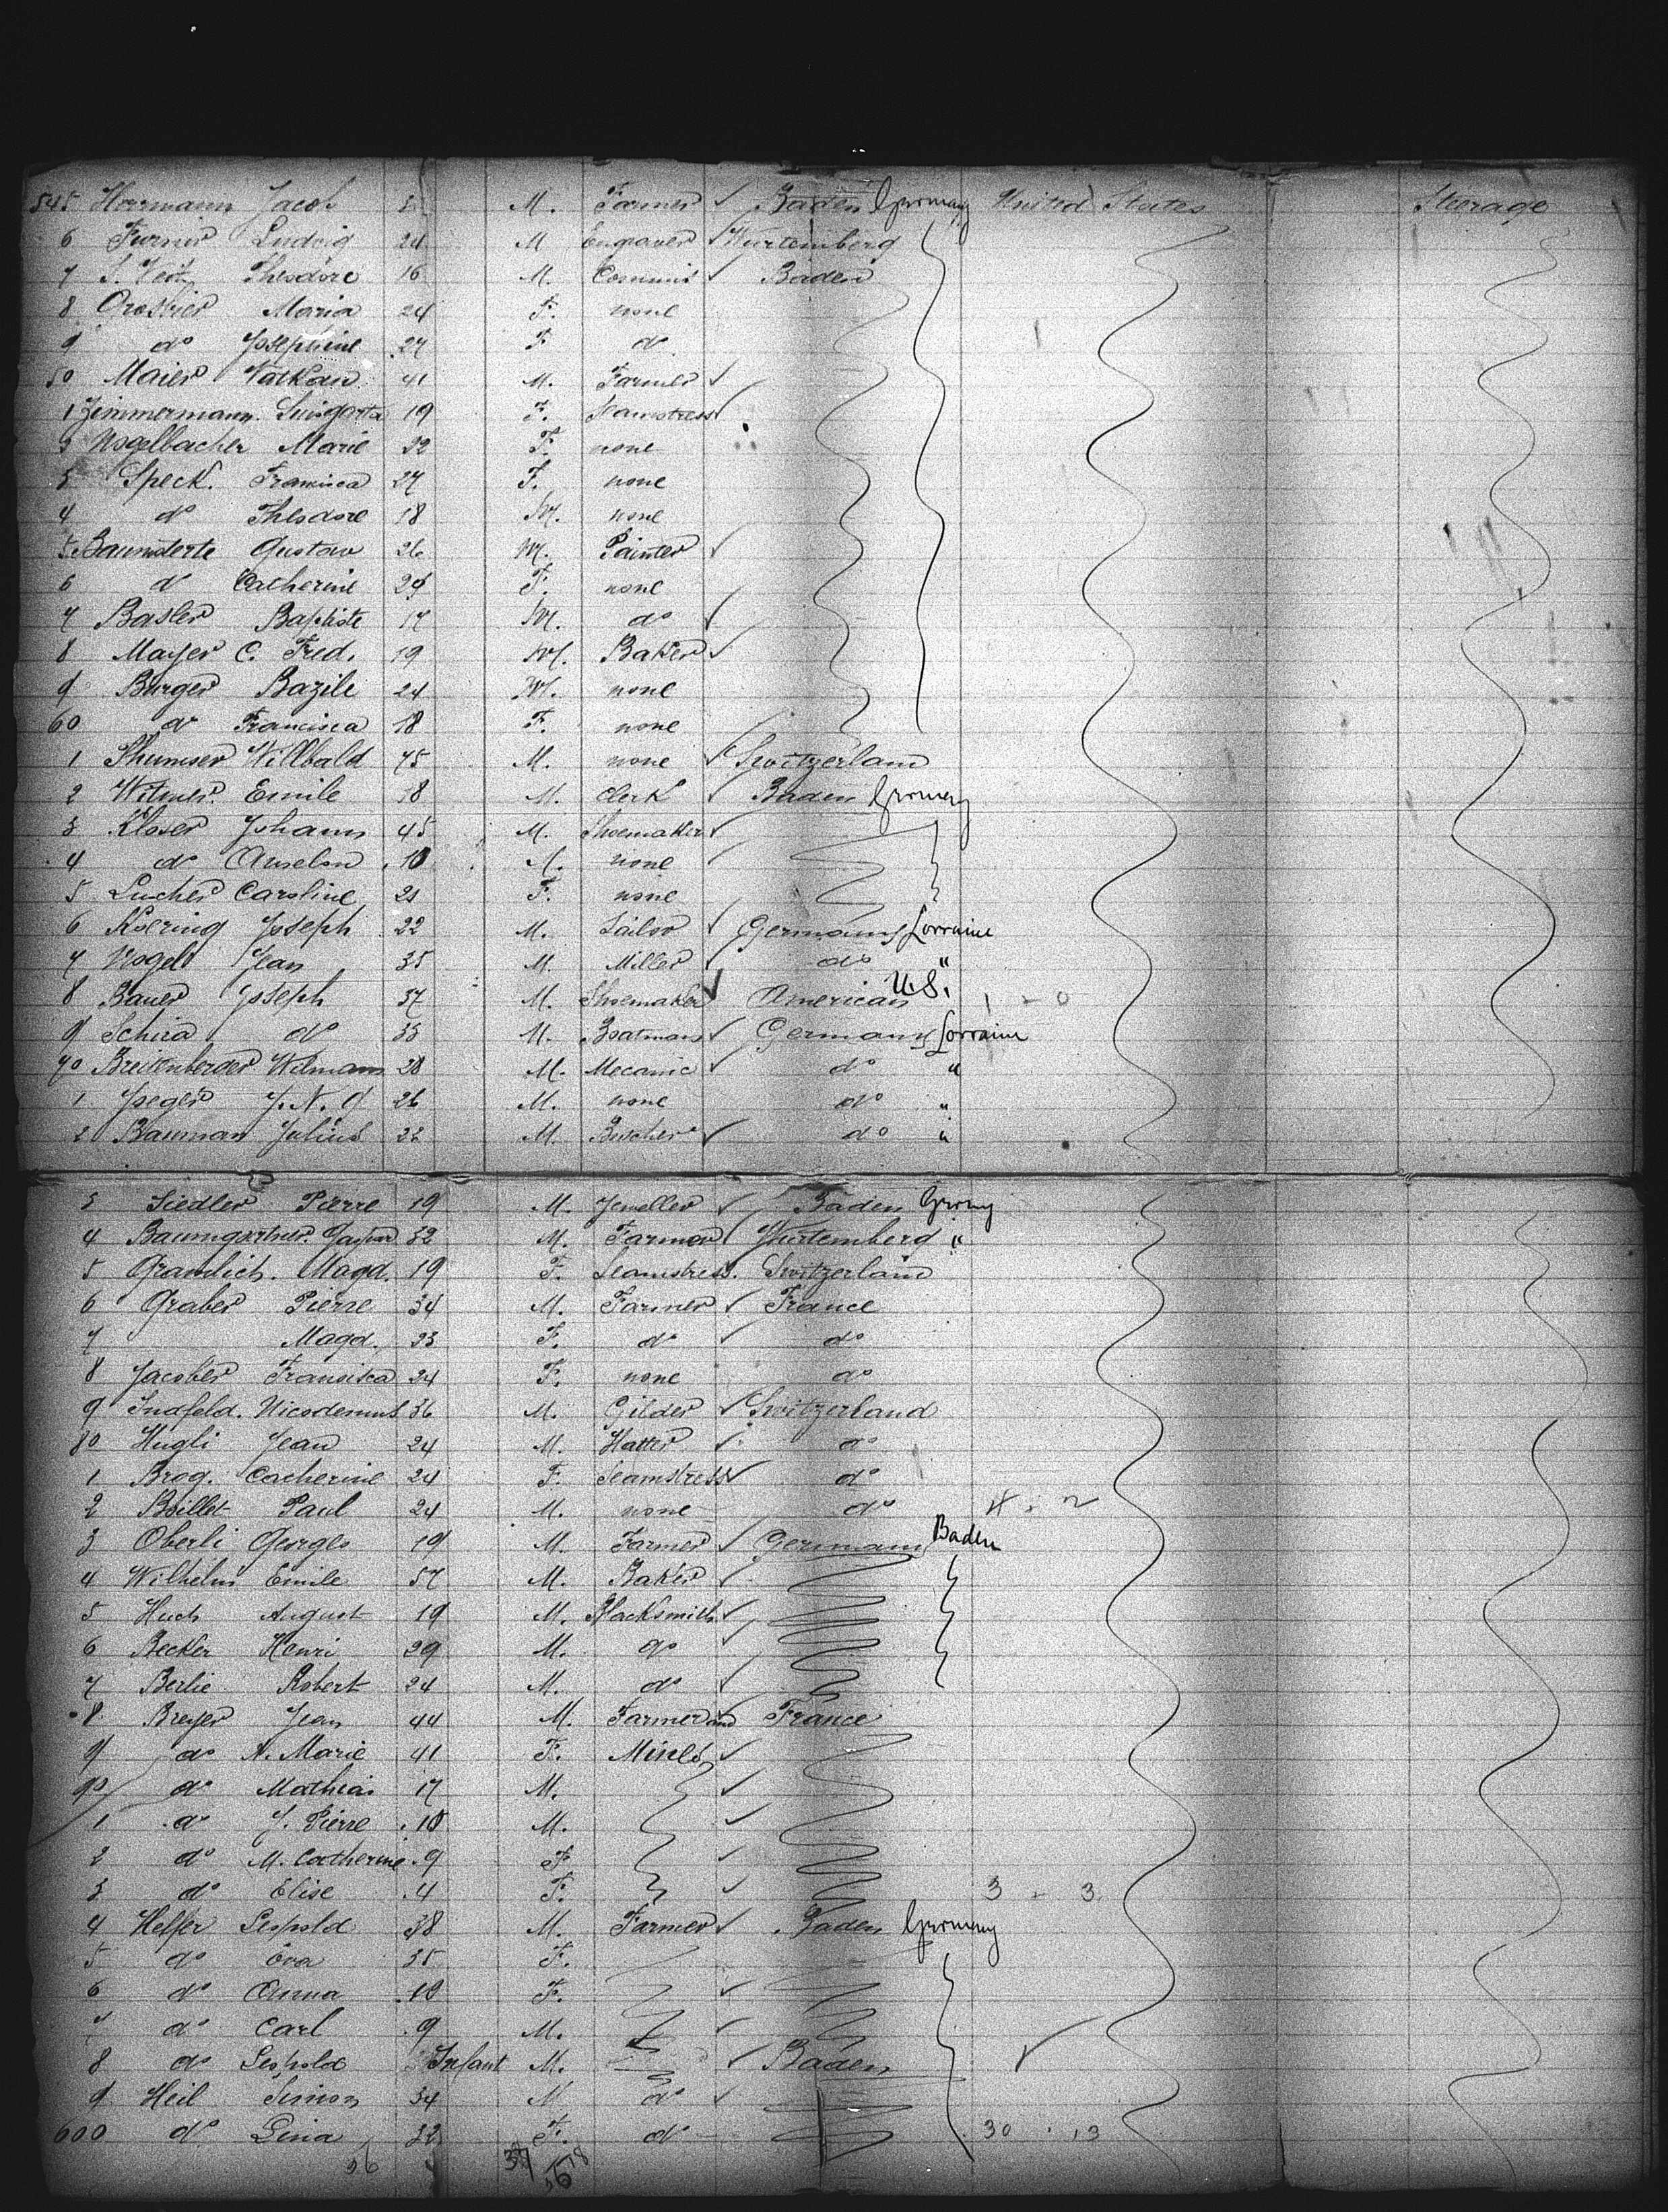 545 Hermann Jacob M. Farmer ✓ Baden Germany United States Steerage
6 Ludwig 24 M Engraver ✓ Wurtemberg
7 Theodore 16 M. Commis ✓ Baden
8 Maria 24 F. none
9 do Josephine 27 F do
50 Maier 41 M. Farmer ✓
1 Zimmermann 19 F. Seamstress ✓
2 Vogelbacher Marie 22 F. none
3 Speck. Francisca 27 F. none
4 do Theodore 18 M. none
5 Gustav 26 M. Painter ✓
6 do Catherine 29 F. none
7 Basler Baptiste 17 M. do ✓
8 Mayer C. Fred. 19 M. Baker ✓
9 Burger Bazile 24 M. none
60 do Francisca 18 F. none
1 Willbald 45 M. none ✓ Switzerland
2 Witmer. Emile 18 M. Clerk ✓ Baden Germany
3 Kloser Johann 45 M. Shoemaker ✓
4 do 10 M. none
5 Lucher Caroline 21 F. none
6 Koering Joseph 22 M. ✓ Germany Lorraine
7 Vogel Jean 35 M. Miller ✓ do "
8 Bauer Joseph 37 M. Shoemaker ✓ American U.S. 1 - 0
9 Schira do 33 M. Boatman ✓ Germany Lorraine
70 Breitenberger 28 M. Mecanic ✓ do "
1 Jaeger J. N. 26 M. none do "
2 Bauman Julius 22 M. Butcher ✓ do "
3 Siedler Pierre 19 M. Jeweller ✓ Baden Grmny
4 Baumgartner. Gaspar 32 M. Farmer ✓ Wurtemberg "
5 Gramlich. Magd. 19 F. Seamstress. Switzerland
6 Graber Pierre 34 M. Farmer ✓ France
7 Magd. 23 F. do ✓ do
8 Jacober Francisca 24 F. none do
9 Indfeld. Nicodemus 36 M. Gilder ✓ Switzerland
80 Hugli Jean 24 M. Hatter ✓ do
1 Brog. Catherine 24 F. Seamstress ✓ do
2 Boillet Paul 24 M. none do
3 Oberli Georges 19 M. Farmer ✓ Germany Baden
4 Wilhelm Emile 57 M. Baker ✓
5 Huch August 19 M. Blacksmith ✓
6 Becker Henri 29 M. do ✓
7 Berlie Robert 24 M. do ✓
8 Breyer Jean 44 M. Farmer and France
9 do A. Marie 41 F. Miner ✓
90 do Mathias 17 M. ✓
1 do J. Pierre 10 M. ✓
2 do M. Catherine 9 F ✓
3 do Elise 4 F. ✓ 3 - 3
4 Helfer Leopold 38 M. Farmer ✓ Baden Germany
5 do Eva 35 F.
6 do Anna 10 F. ✓
7 do Carl 9 M. ✓
8 do Leopold Infant M. ✓ Baden ✓
9 Heil Simon 34 M do ✓
600 do Lina 32 F. do 30 . 13
56